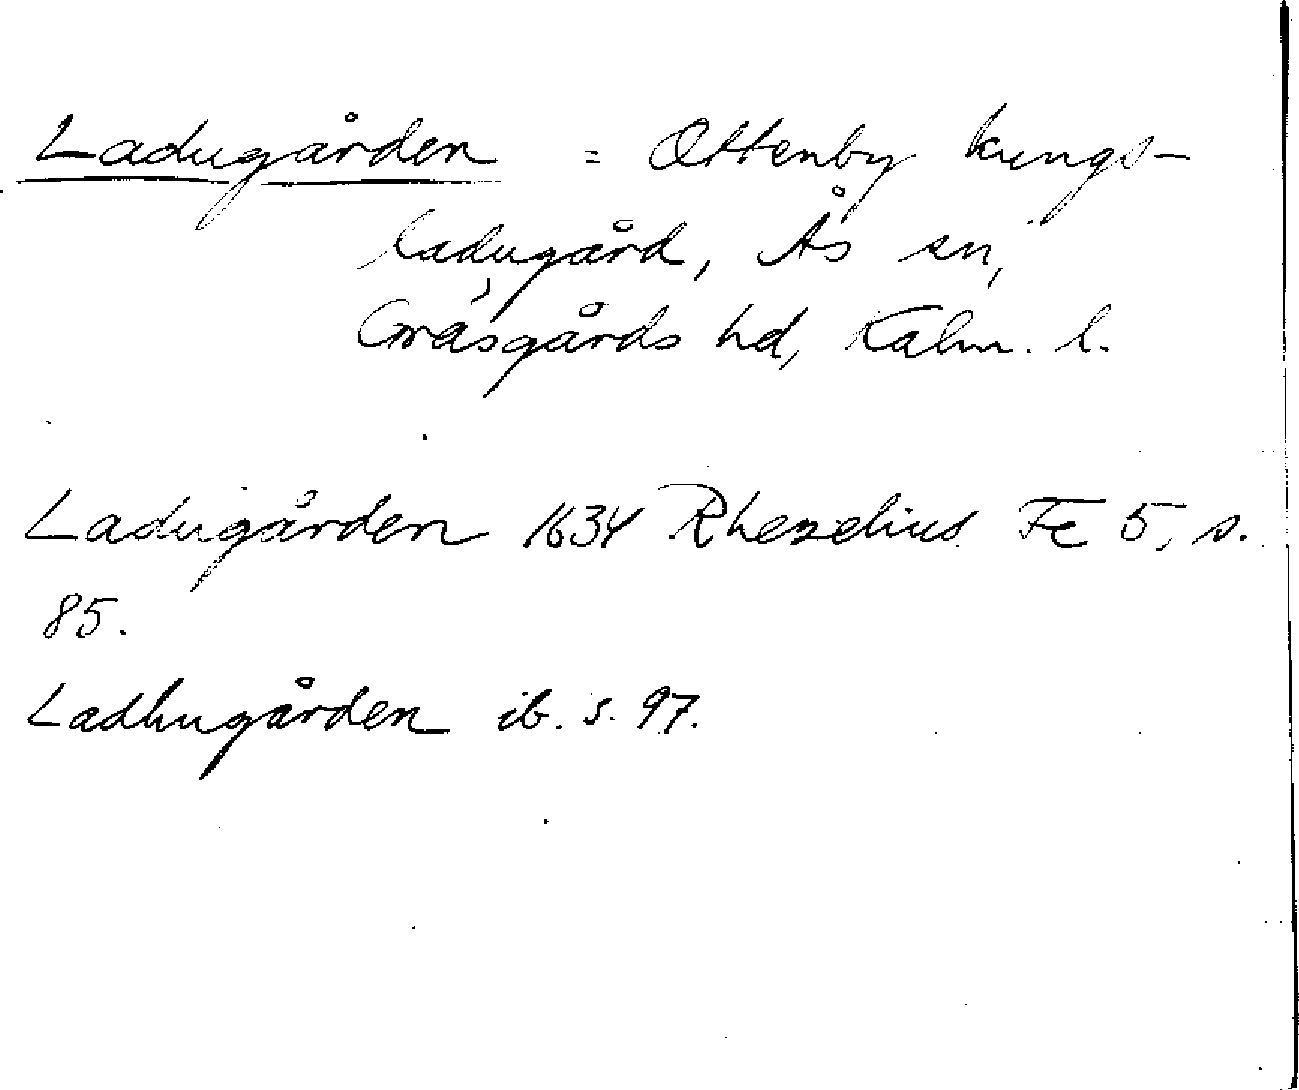 Ladugården = Ottenby kungs-
ladugård, Ås sn,
Gräsgårds hd, Kalm. l.
Ladugården 1634 Rhezelius Fc 5, s.
85.
Ladhugården ib. s. 97.